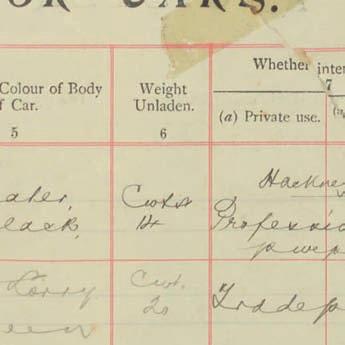 OR CARS.
Colour of Body
f Car.
5
Weight
Unladen.
6
Whether inten
7
(a) Private use.
Cwts
14
Hackney
Professio
Lorry
een
Cwt.
20
Trade p